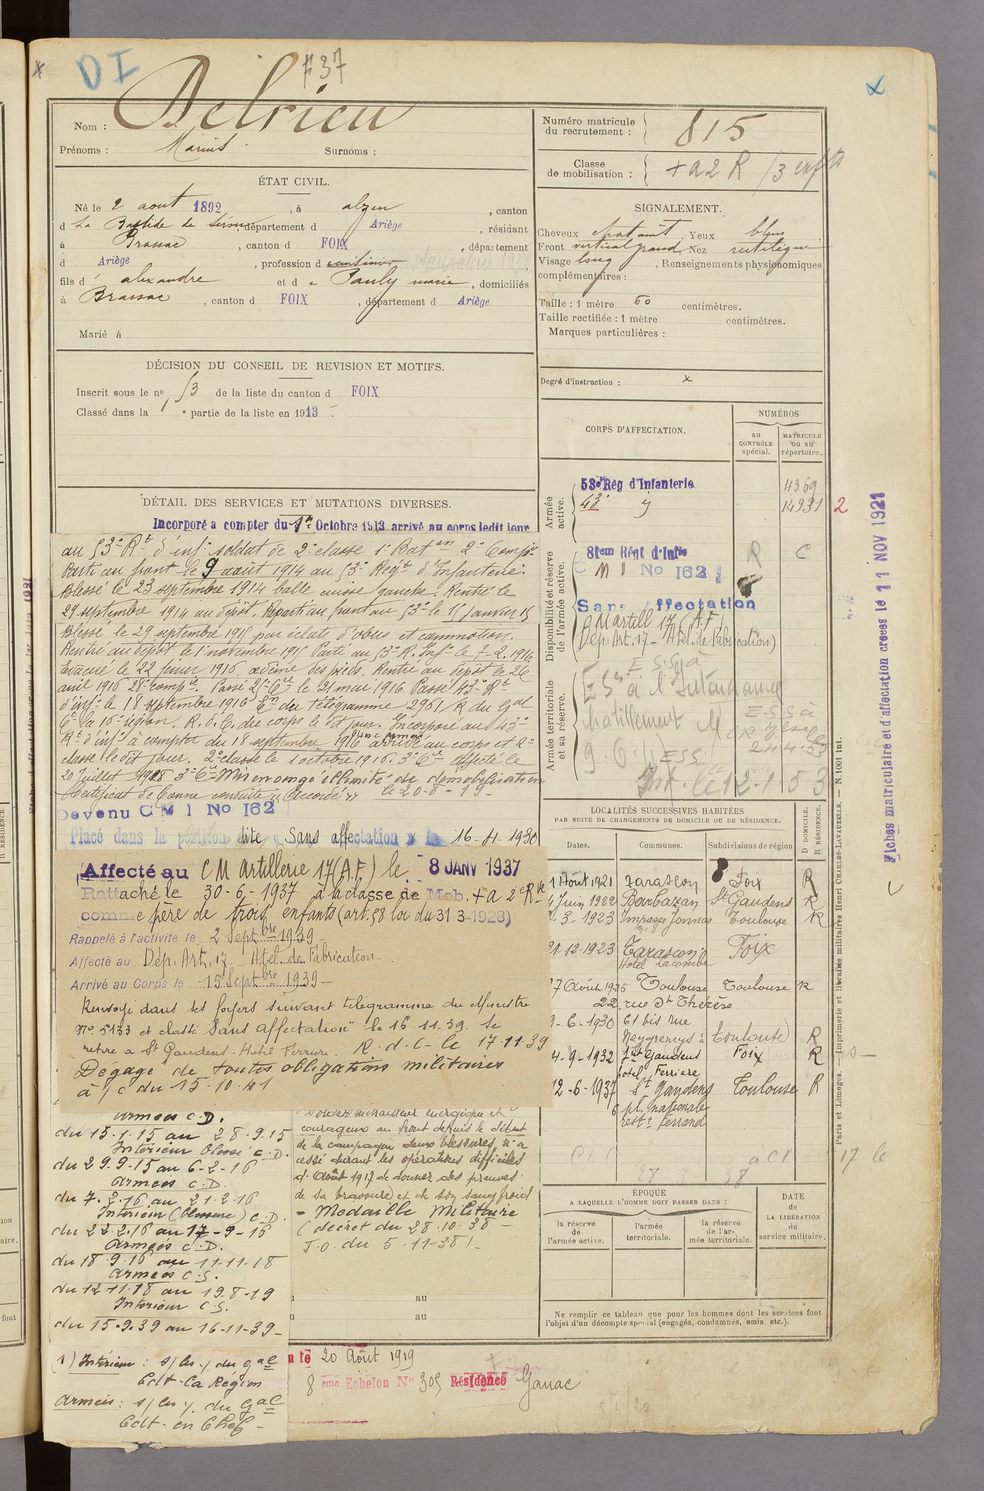 DI
F37
x
Nom : Delrieu
Prénoms : Marius Surnoms :
ÉTAT CIVIL.
Né le 2 aout 1892, à alzen, canton
d La Bastide de Sérou département d Ariège, résidant
à Brassac, canton d FOIX, département
d Ariège, profession d
fils d' alexandre et d e Pauly marie, domiciliés
à Brassac, canton d FOIX, département d Ariège
Marié à
DÉCISION DU CONSEIL DE REVISION ET MOTIFS.
Inscrit sous le no 53 de la liste du canton d FOIX
Classé dans la 1e partie de la liste en 1913
DÉTAIL DES SERVICES ET MUTATIONS DIVERSES.
Incorporé à compter du 1er Octobre 1913 arrivé au corps ledit jour
au 53e Rt d'inf. soldat de 2e classe 1er Baton 2e Compie
Parti au front le 9 août 1914 au 53e Regt d'Infanterie.
Blessé le 23 septembre 1914 balle cuisse gauche. Rentré le
29 septembre 1914 au dépôt. Reparti au front au 53e le 15 janvier 15
Blessé le 29 septembre 1915 par éclats d'obus et commotion.
Rentré au dépôt le 1 novembre 1915 Parti au 53e R. Inf. le 7-2-1916
Evacué le 22 février 1916 œdème des pieds. Rentré au dépôt le 26
avril 1916 28e Compie. Passé 25e Cie le 21 mai 1916 Passé 43e Rt
d'inf. le 18 septembre 1916 En du télégramme 2961/R du Gal
Ct la 16e région. R.d.C. du corps le dit jour. Incorporé au 43e
Rt d'inf. à compter du 18 septembre 1916 arrivé au corps et 2e
classe le dit jour. 2e classe le 1 octobre 1916. 3e Cie affecté le
20 Juillet 1918 3e Cie Mis en congé illimité de démobilisation
Certificat de bonne conduite "Accordé" le 20-8-19-
Devenu C M I No 162
Placé dans la position dite Sans affectation le 16-4-1930
Affecté au C M Artillerie 17 (A.F.) le 8 JANV 1937
Rattaché le 30-6-1937 à la classe de Mob. + a 2e Rve
comme père de trois enfants (art. 58 loi du 31-3-1928)
Rappelé à l'activité le 2 Septbre 1939
Affecté au Dép. Art. 17 Atel. de Fabrication
Arrivé au Corps le 15 Septbre 1939
Renvoyé dans ses foyers suivant télégramme du Ministre
No 5133 et classé "Sans affectation" le 16.11.39. Se
retire à St Gaudens. Hotel Ferrière. R.d.C. le 17-11-39
Dégagé de toutes obligations militaires
à / c du 15-10-41
Armées C.D.
du 15-1-15 au 28-9-15
Intérieur Blessé C.D.
du 29-9-15 au 6-2-16
Armées C.D.
du 7-2-16 au 21-2-16
Intérieur (blessure) C.D.
du 22-2-16 au 17-9-16
Armées C.D.
du 18-9-16 au 11-11-18
Armées C.S.
du 12-11-18 au 19-8-19
Intérieur C.S.
du 15-9-39 au 16-11-39-
1) Intérieur : s/les y. du Gal
Cdt. la Région
Armées : s/les y. du Gal
Cdt. en Chef -
Soldat mitrailleur énergique et
courageux au front depuis le début
de la campagne, deux blessures, n'a
cessé durant les opérations difficiles
d'Août 1917 de donner des preuves
de sa bravoure et de son sang froid
- Médaille Militaire
(décret du 28-10-38 -
J.O. du 5-11-38).
au
au
le 20 Août 1919
8ème Echelon No 305 Résidence Ganac
Numéro matricule
du recrutement : 815
Classe
de mobilisation : + a 2 R / 3 enfts
SIGNALEMENT.
Cheveux chat. Yeux bleus
Front vertical grand Nez rectiligne
Visage long, Renseignements physionomiques
complémentaires :
Taille : 1 mètre 60 centimètres.
Taille rectifiée : 1 mètre centimètres.
Marques particulières :
Degré d'instruction : x
CORPS D'AFFECTATION.
NUMÉROS
au CONTRÔLE spécial.
MATRICULE ou au répertoire.
Armée active.
53e Rég d'Infanterie 4369
43e 14931 2
Disponibilité et réserve de l'armée active.
81em Régt d'Infie R C
C M I No 162
Sans affectation
C M artill 17 (A.F.)
(Dép. Art. 17 - Atel. de Fabrication)
Armée territoriale et sa réserve.
LOCALITÉS SUCCESSIVES HABITÉES
PAR SUITE DE CHANGEMENTS DE DOMICILE OU DE RÉSIDENCE.
Dates. Communes. Subdivisions de région D DOMICILE. R RÉSIDENCE.
1 Août 1921 Tarascon Foix R
4 Juin 1922 Barbazan St Gaudens R
3.1923 Impasse Jonnas Toulouse R
12-1923 Tarascon Foix
Hotel Lacombe
7 Août 1925 Toulouse Toulouse R
22 rue Ste Thérèse
-6-1930 61 bis rue
Toulouse R
4-9-1932 St Gaudens Foix R
hotel Ferriere
12-6-1937 St Gaudens Toulouse R
6 pl. nationale
rest. Ferrand
ÉPOQUE
A LAQUELLE L'HOMME DOIT PASSER DANS :
la réserve de l'armée active.
l'armée territoriale.
la réserve de l'armée territoriale.
DATE de LA LIBÉRATION du service militaire.
Ne remplir ce tableau que pour les hommes dont les services font
l'objet d'un décompte spécial (engagés, condamnés, omis, etc.).
Fiches matriculaire et d'affectation créées le 11 NOV 1921
Paris et Limoges. — Imprimerie et librairie militaires Henri CHARLES-LAVAUZELLE. — N. 1001 Int.
17 le